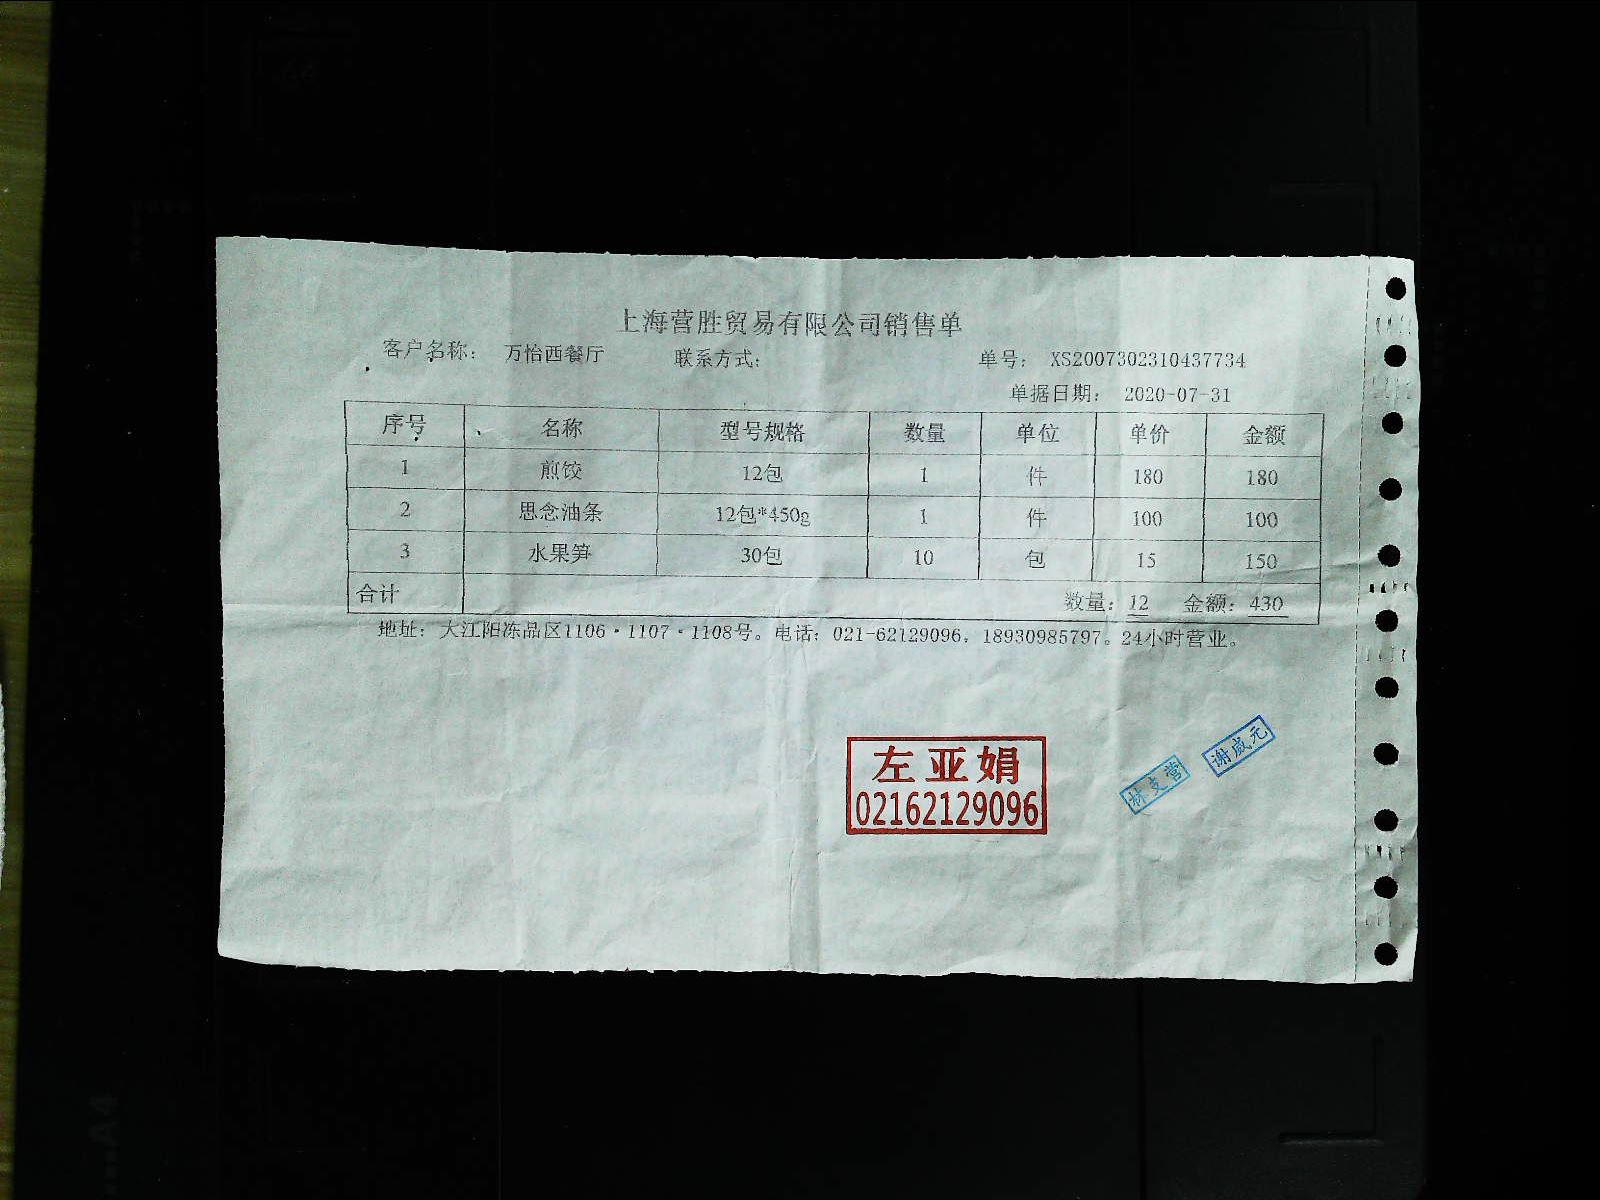 上海营胜贸易有限公司销售单
客户名称： 万怡西餐厅 联系方式： 单号： XS2007302310437734
单据日期： 2020-07-31
序号 名称 型号规格 数量 单位 单价 金额
1 煎饺 12包 1 件 180 180
2 思念油条 12包*450g 1 件 100 100
3 水果笋 30包 10 包 15 150
合计 数量：12 金额：430
地址：大江阳冻品区1106·1107·1108号。电话：021-62129096，18930985797。24小时营业。
左亚娟
02162129096
林支营
谢威元
A4